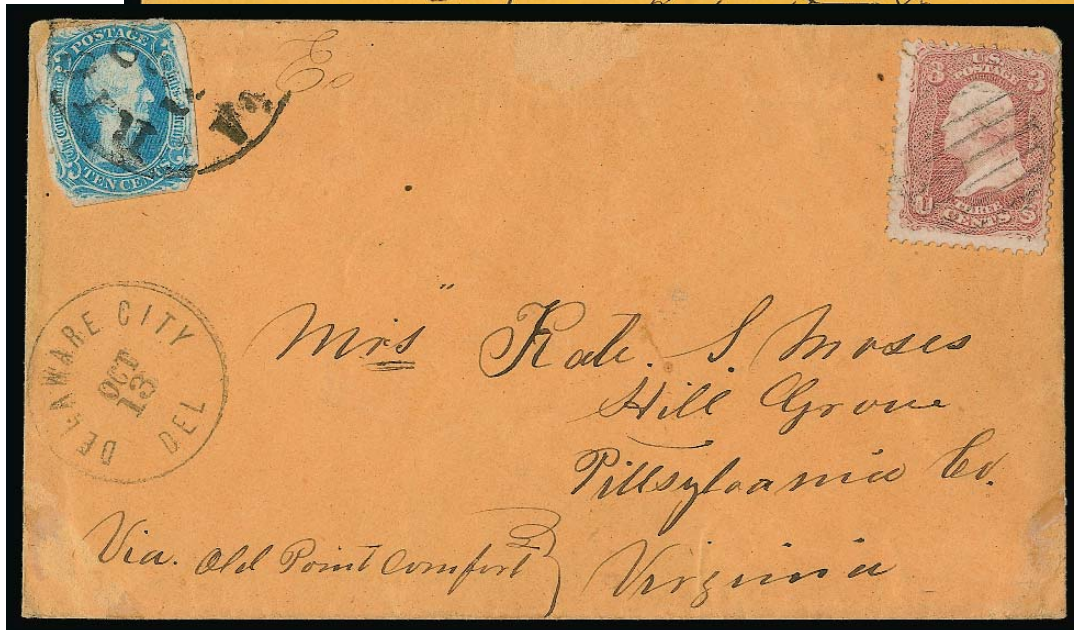 POSTAGE
TEN CENTS
VA
Ex
U.S. POSTAGE
3 3
THREE CENTS
DELAWARE CITY DEL
OCT
13
Mrs Kate. S. Moses
Hill Grove
Pittsylvania Co.
Virginia
Via. Old Point Comfort